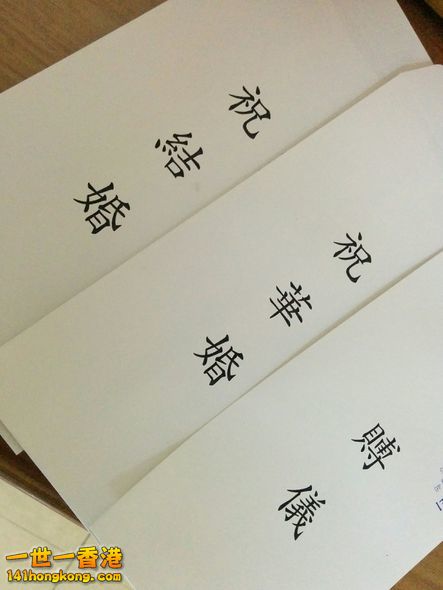 祝結婚
祝華婚
賻儀
一世一香港
141hongkong.com